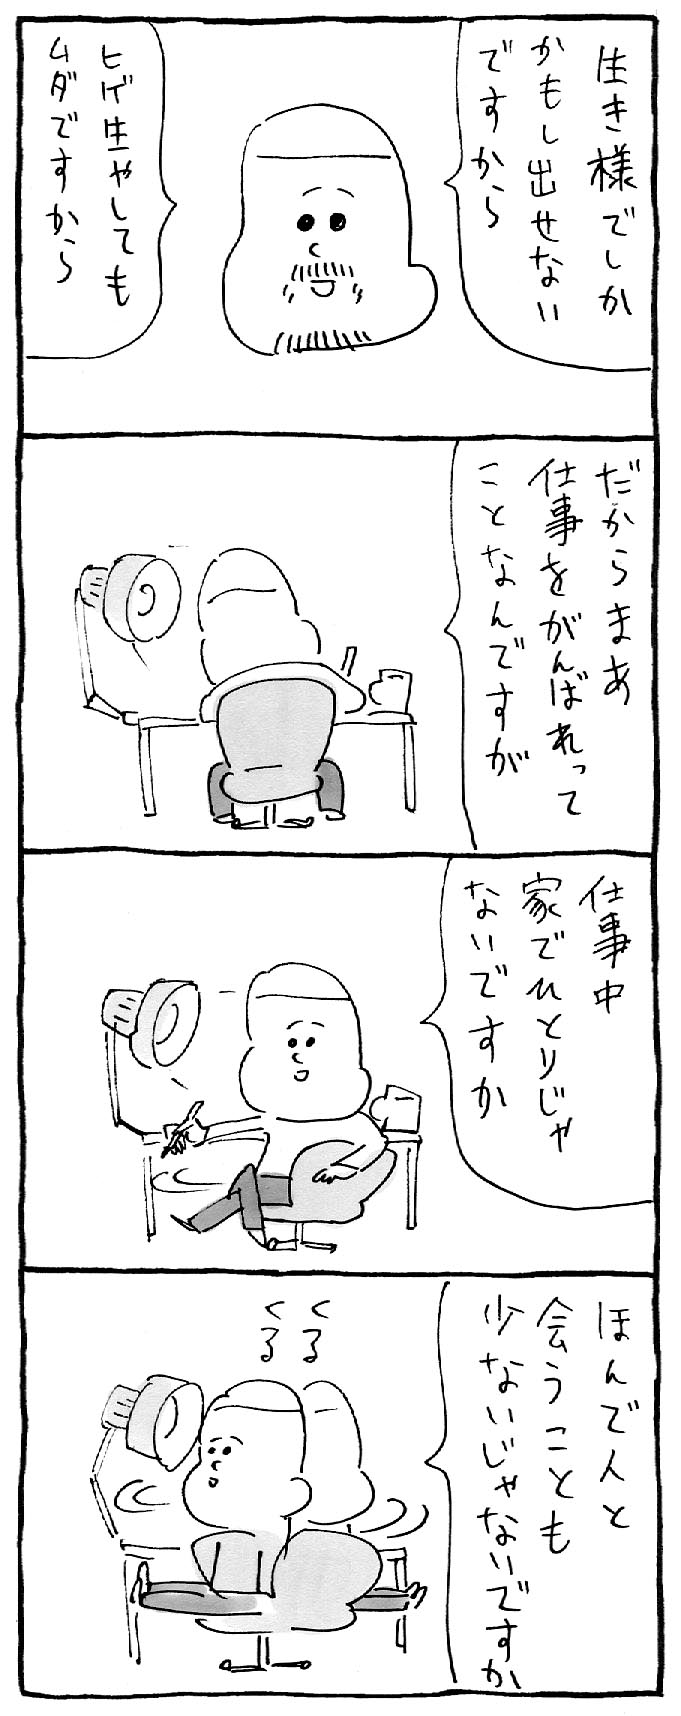 生き様でしか
かもし出せない
ですから
ヒゲ生やしても
ムダですから
だからまあ
仕事をがんばれって
ことなんですが
仕事中
家でひとりじゃ
ないですか
ほんで人と
会うことも
少ないじゃないですか
くる
くる